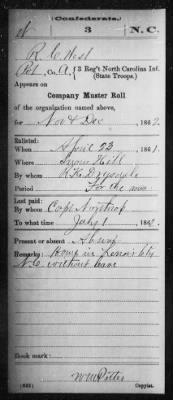 (Confederate.)
3 N.C.
R. C. West
Pvt, Co. A, 3 Reg't North Carolina Inf.
(State Troops.)
Appears on
Company Muster Roll
of the organization named above,
for Nov & Dec, 186
Enlisted:
When April 23, 186
Where Snow Hill
By whom
Period For the war
Last paid:
By whom Capt
To what time July 1, 186
Present or absent Absent
Remarks: in Lenoir Cty
N.C. without leave
Book mark:
Wm
Copyist.